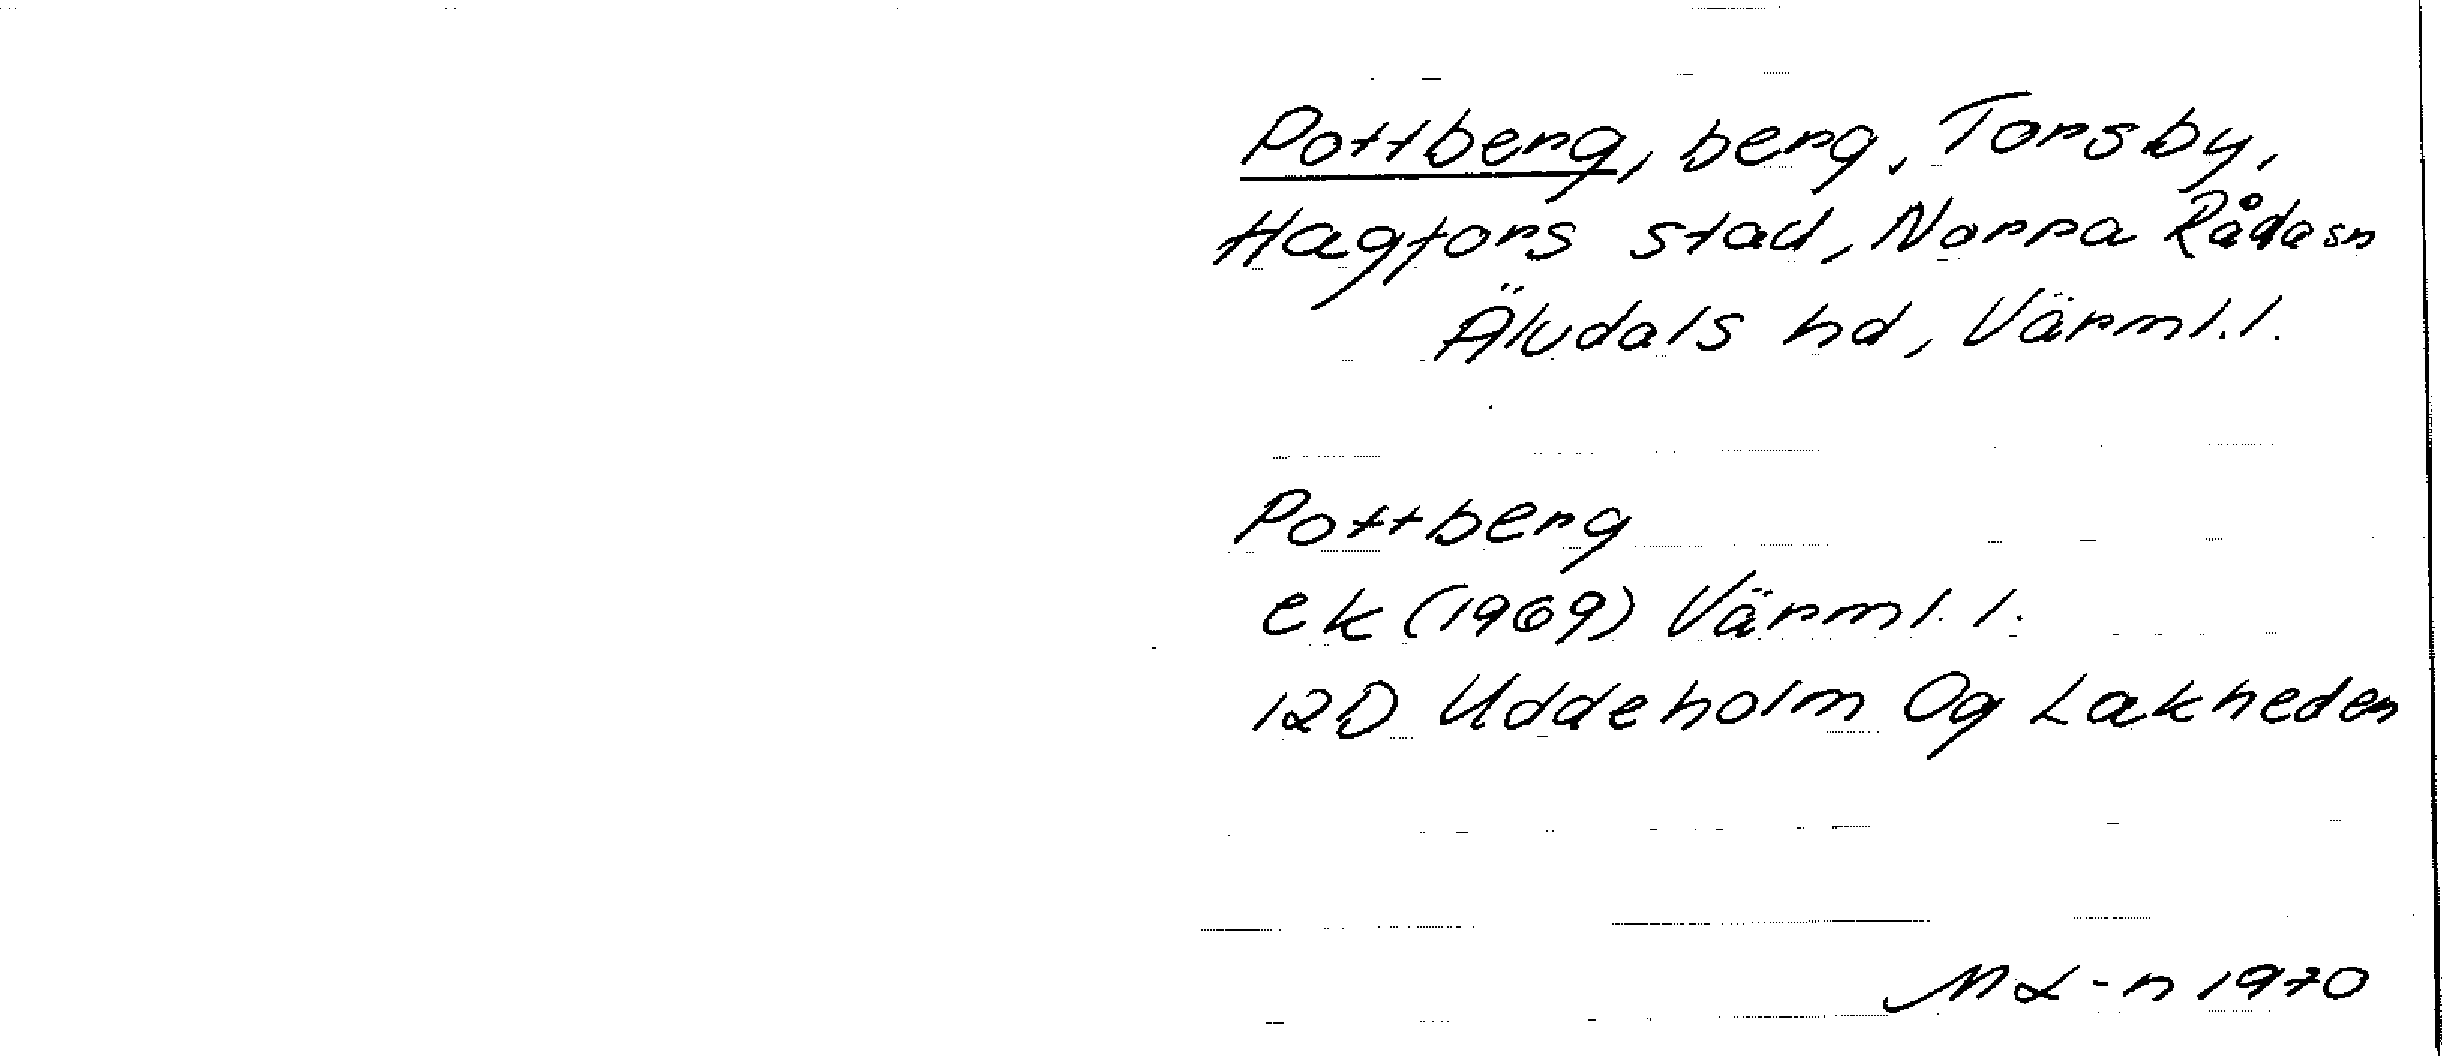 Pottberg, berg, Torsby,
Hagfors stad, Norra Råda sn
Älvdals hd, Värml. l.
Pottberg
ek (1969) Värml. l.
12D Uddeholm Og Lakheden
M L-n 1970